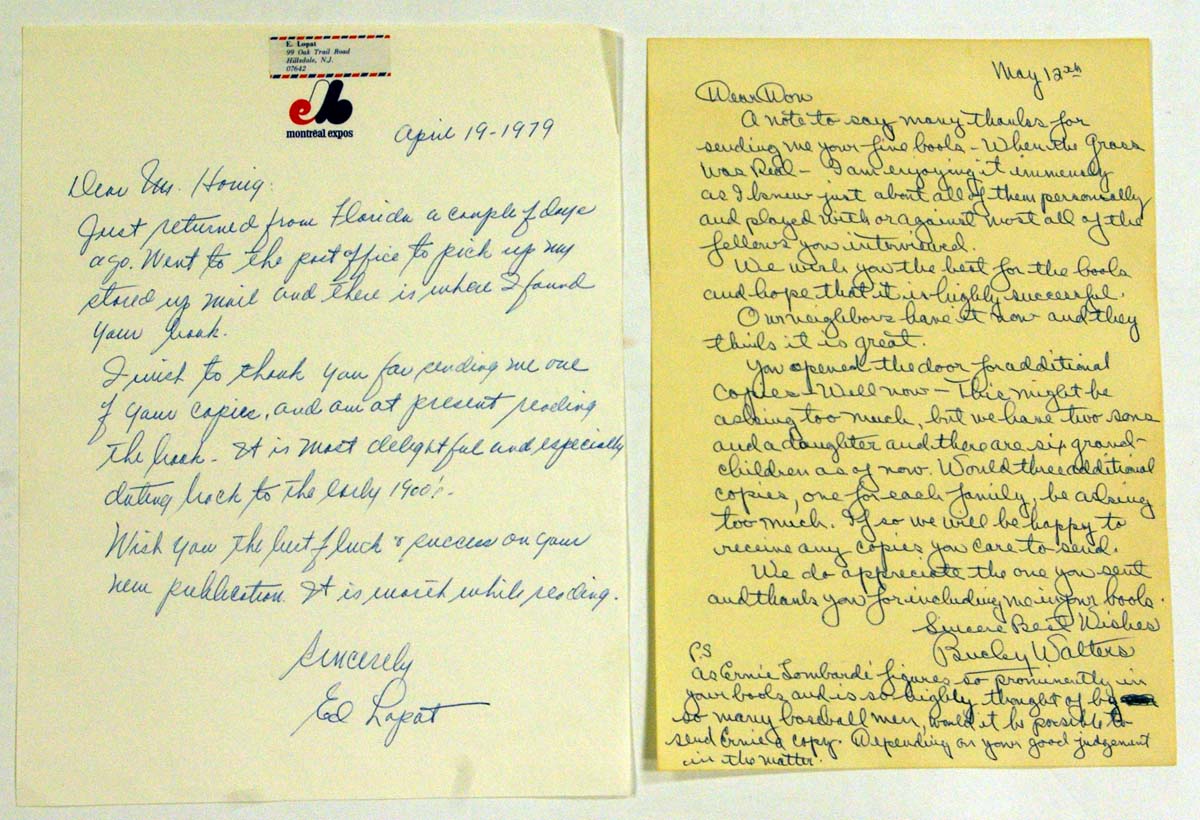 E. Lopat
99 Oak Trail Road
Hillsdale, N.J.
07642
montréal expos
April 19-1979
Dear Mr. Honig:
Just returned from Florida a couple of days
ago. Went to the post office to pick up my
stored up mail and there is where I found
your book.
I wish to thank you for sending me one
of your copies, and am at present reading
the book. It is most delightful and especially
dating back to the early 1900's.
Wish you the best of luck & success on your
new publication. It is worth while reading.
Sincerely
Ed Lopat
May 12th
Dear Don
A note to say many thanks for
sending me your fine book - When the Grass
Was Real - I am enjoying it immensely
as I knew just about all of them personally
and played with or against most all of the
fellows you interviewed.
We wish you the best for the book
and hope that it is highly successful.
Our neighbors have it now and they
think it is great.
You opened the door for additional
copies - Well now - This might be
asking too much, but we have two sons
and a daughter and there are six grand-
children as of now. Would three additional
copies, one for each family, be asking
too much. If so we will be happy to
receive any copies you care to send.
We do appreciate the one you sent
and thank you for including me in your book.
Sincere Best Wishes
Bucky Walters
P.S
As Ernie Lombardi figures so prominently in
your book and is so highly thought of by
so many baseball men, would it be possible to
send Ernie a copy. Depending on your good judgement
in the matter.